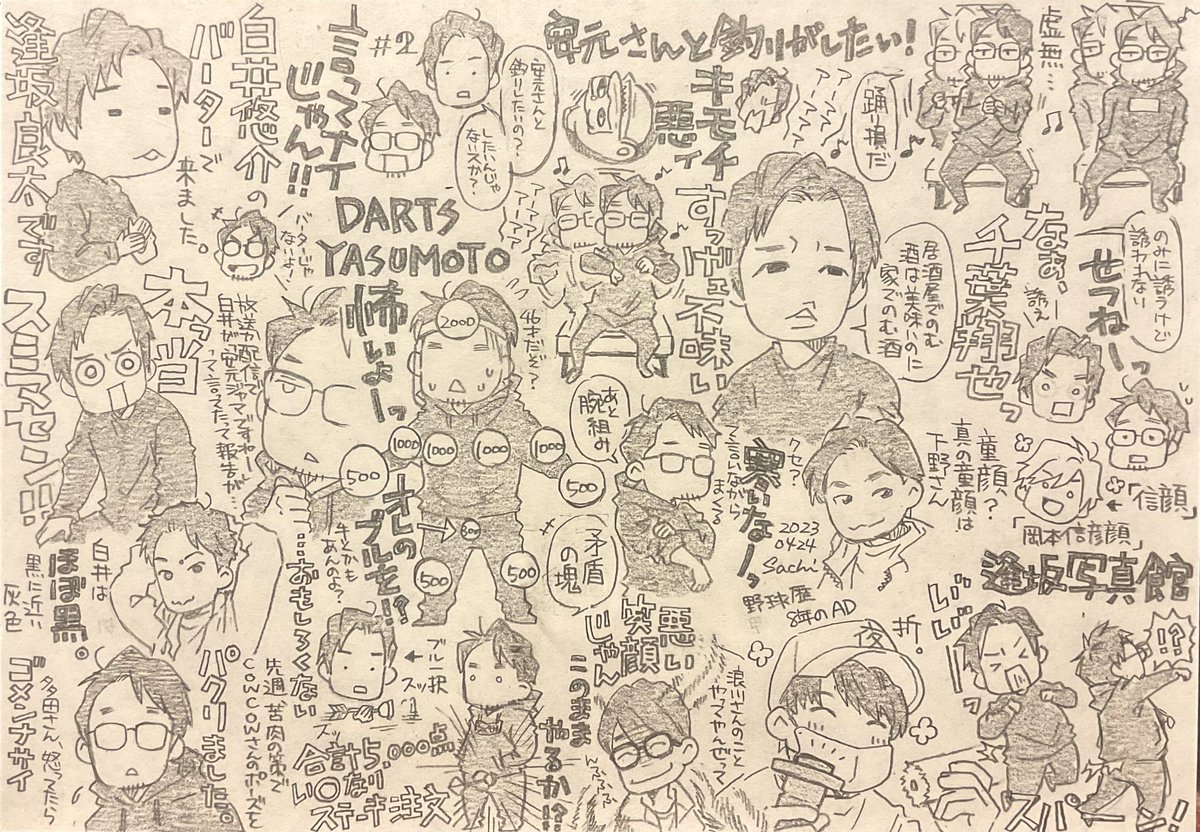 逢坂良太です
白井悠介の
バーターで
来ました。
バーターじゃ
ないす!
言ってナイ
じゃん!!
#2
安元さんと
釣りしたいの?
したいんじゃ
ないスか?
安元さんと釣りがしたい!
キモチ
悪ィ
アーアアア
アーアアア
踊り損だ
虚無…
DARTS
YASUMOTO
アーアアア
アーアアア
すっげェ不味い
居酒屋でのむ
酒は美味いのに
家でのむ酒
なぁ、
千葉翔也っ
誘え
「せつねーっ
のみに誘うけど
誘われない
本当
スミマセン!!
放送分配信で
白井が「安元ジャマですねー」
って言ってたって報告が…
怖いよーっ
2000
46才だぞ?
1000
1000
1000
1000
500
500
500
500
オレの
ブルを!?
キとかも
あんのよ?
…おもしろくない
あと
腕組み
矛盾
の塊
クセ?
寒いなーっ
て言いながら
まくる
2023
0424
Sachi
童顔?
真の童顔は
下野さん
「信顔」
「岡本信彦顔」
白井は
ほぼ黒。
黒に近い
灰色
多田さん、怒ってたら
ゴメンナサイ
パクリました。
先週、苦肉の策で
COWCOWさんのポーズを
←ブル択
スッ
合計5,000点
となり
ステーキ注文
このまま
やるか!?
悪い
笑顔
じゃん
野球歴
8年のAD
浪川さんのこと
やってやんぜって
逢坂写真館
いい
ーっ
!?
スパーン!